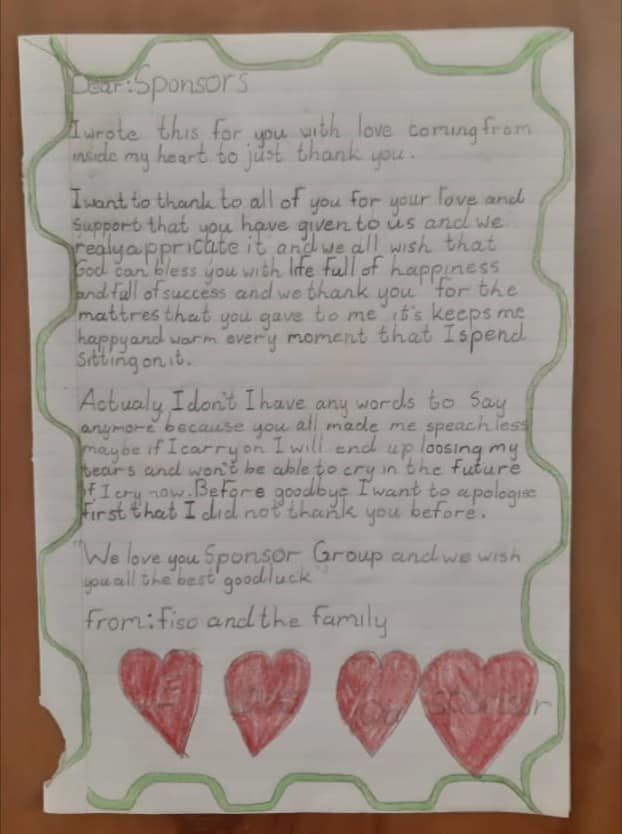 Dear: Sponsors
I wrote this for you with love coming from
inside my heart to just thank you.
I want to thank to all of you for your love and
support that you have given to us and we
realy appricate it and we all wish that
God can bless you with life full of happiness
and full of success and we thank you for the
mattres that you gave to me it's keeps me
happy and warm every moment that I spend
Sitting on it.
Actualy I don't I have any words to Say
anymore because you all made me speachless
maybe if I carry on I will end up loosing my
tears and won't be able to cry in the future
if I cry now. Before goodbye I want to apologise
first that I did not thank you before.
"We love you Sponsor Group and we wish
you all the best good luck"
from: fiso and the family
WE LOVE OUR sponsor